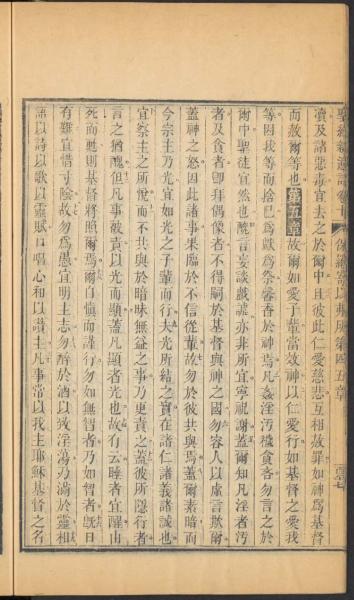 瀆及諸惡毒宜去之於爾中且彼此仁愛慈悲互相赦罪如神爲基督
而赦爾等也第五章故爾如愛子輩當效神以仁愛行如基督之愛我
等因我等而捨已爲獻爲祭馨香於神焉凡姦淫汚穢貪吝勿言之於
爾中聖徒宜然也醜言妄談戲謔亦非所宜寧祝謝蓋爾知凡淫者汚
者及貪者即拜偶像者不得嗣於基督與神之國勿容人以虛言欺爾
蓋神之怒因此諸事果臨於不信從輩故勿於彼共與焉蓋爾素暗而
今宗主乃光宜如光之子輩而行夫光所結之實在諸仁諸義諸誠也
宜察主之所悅而不共與於暗昧無益之事乃更責之蓋彼所隱行者
言之猶醜但凡事被責以光而顯蓋凡顯者光也故有云睡者宜醒由
死而甦則基督將照爾焉爾自慎而謹行勿如無智者乃如智者旣日
有難宜惜寸陰故勿爲愚宜明主志勿醉於酒以致淫蕩乃滿於靈相
語以詩以歌以靈賦口唱心和以讚主凡事常以我主耶穌基督之名